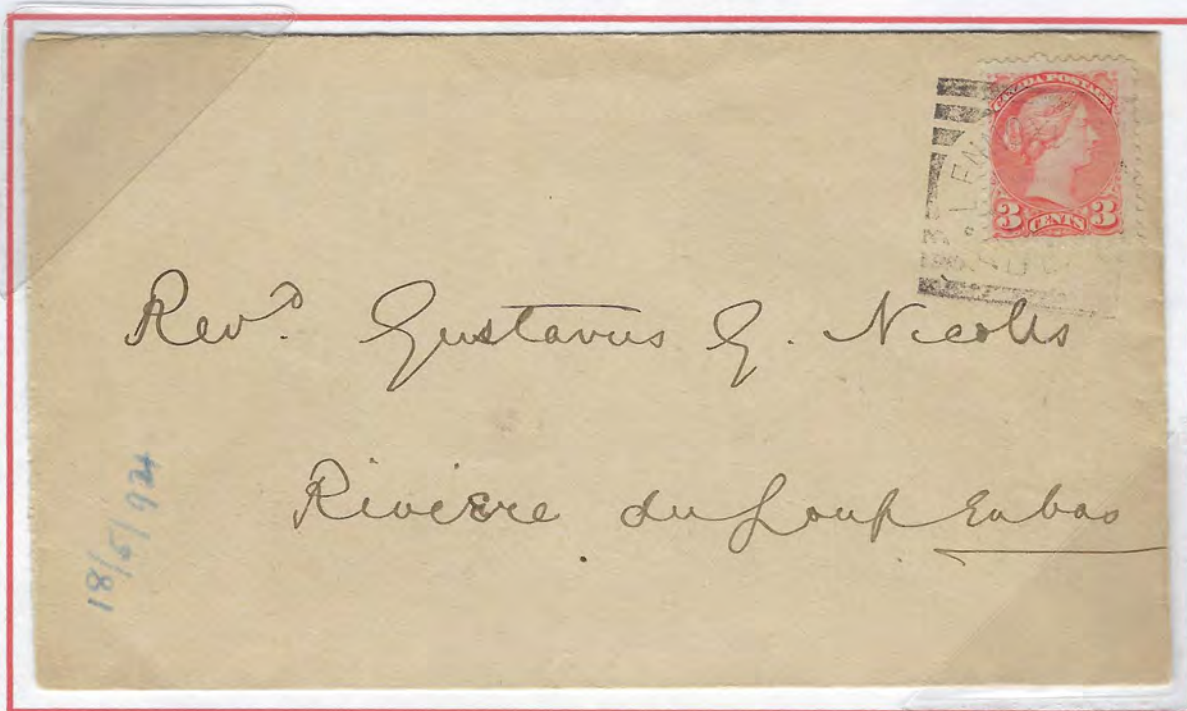 CANADA POSTAGE
3 CENTS 3
Revd. Gustavus G. Nicolls
Rivière du Loup Enbas
18/5/92